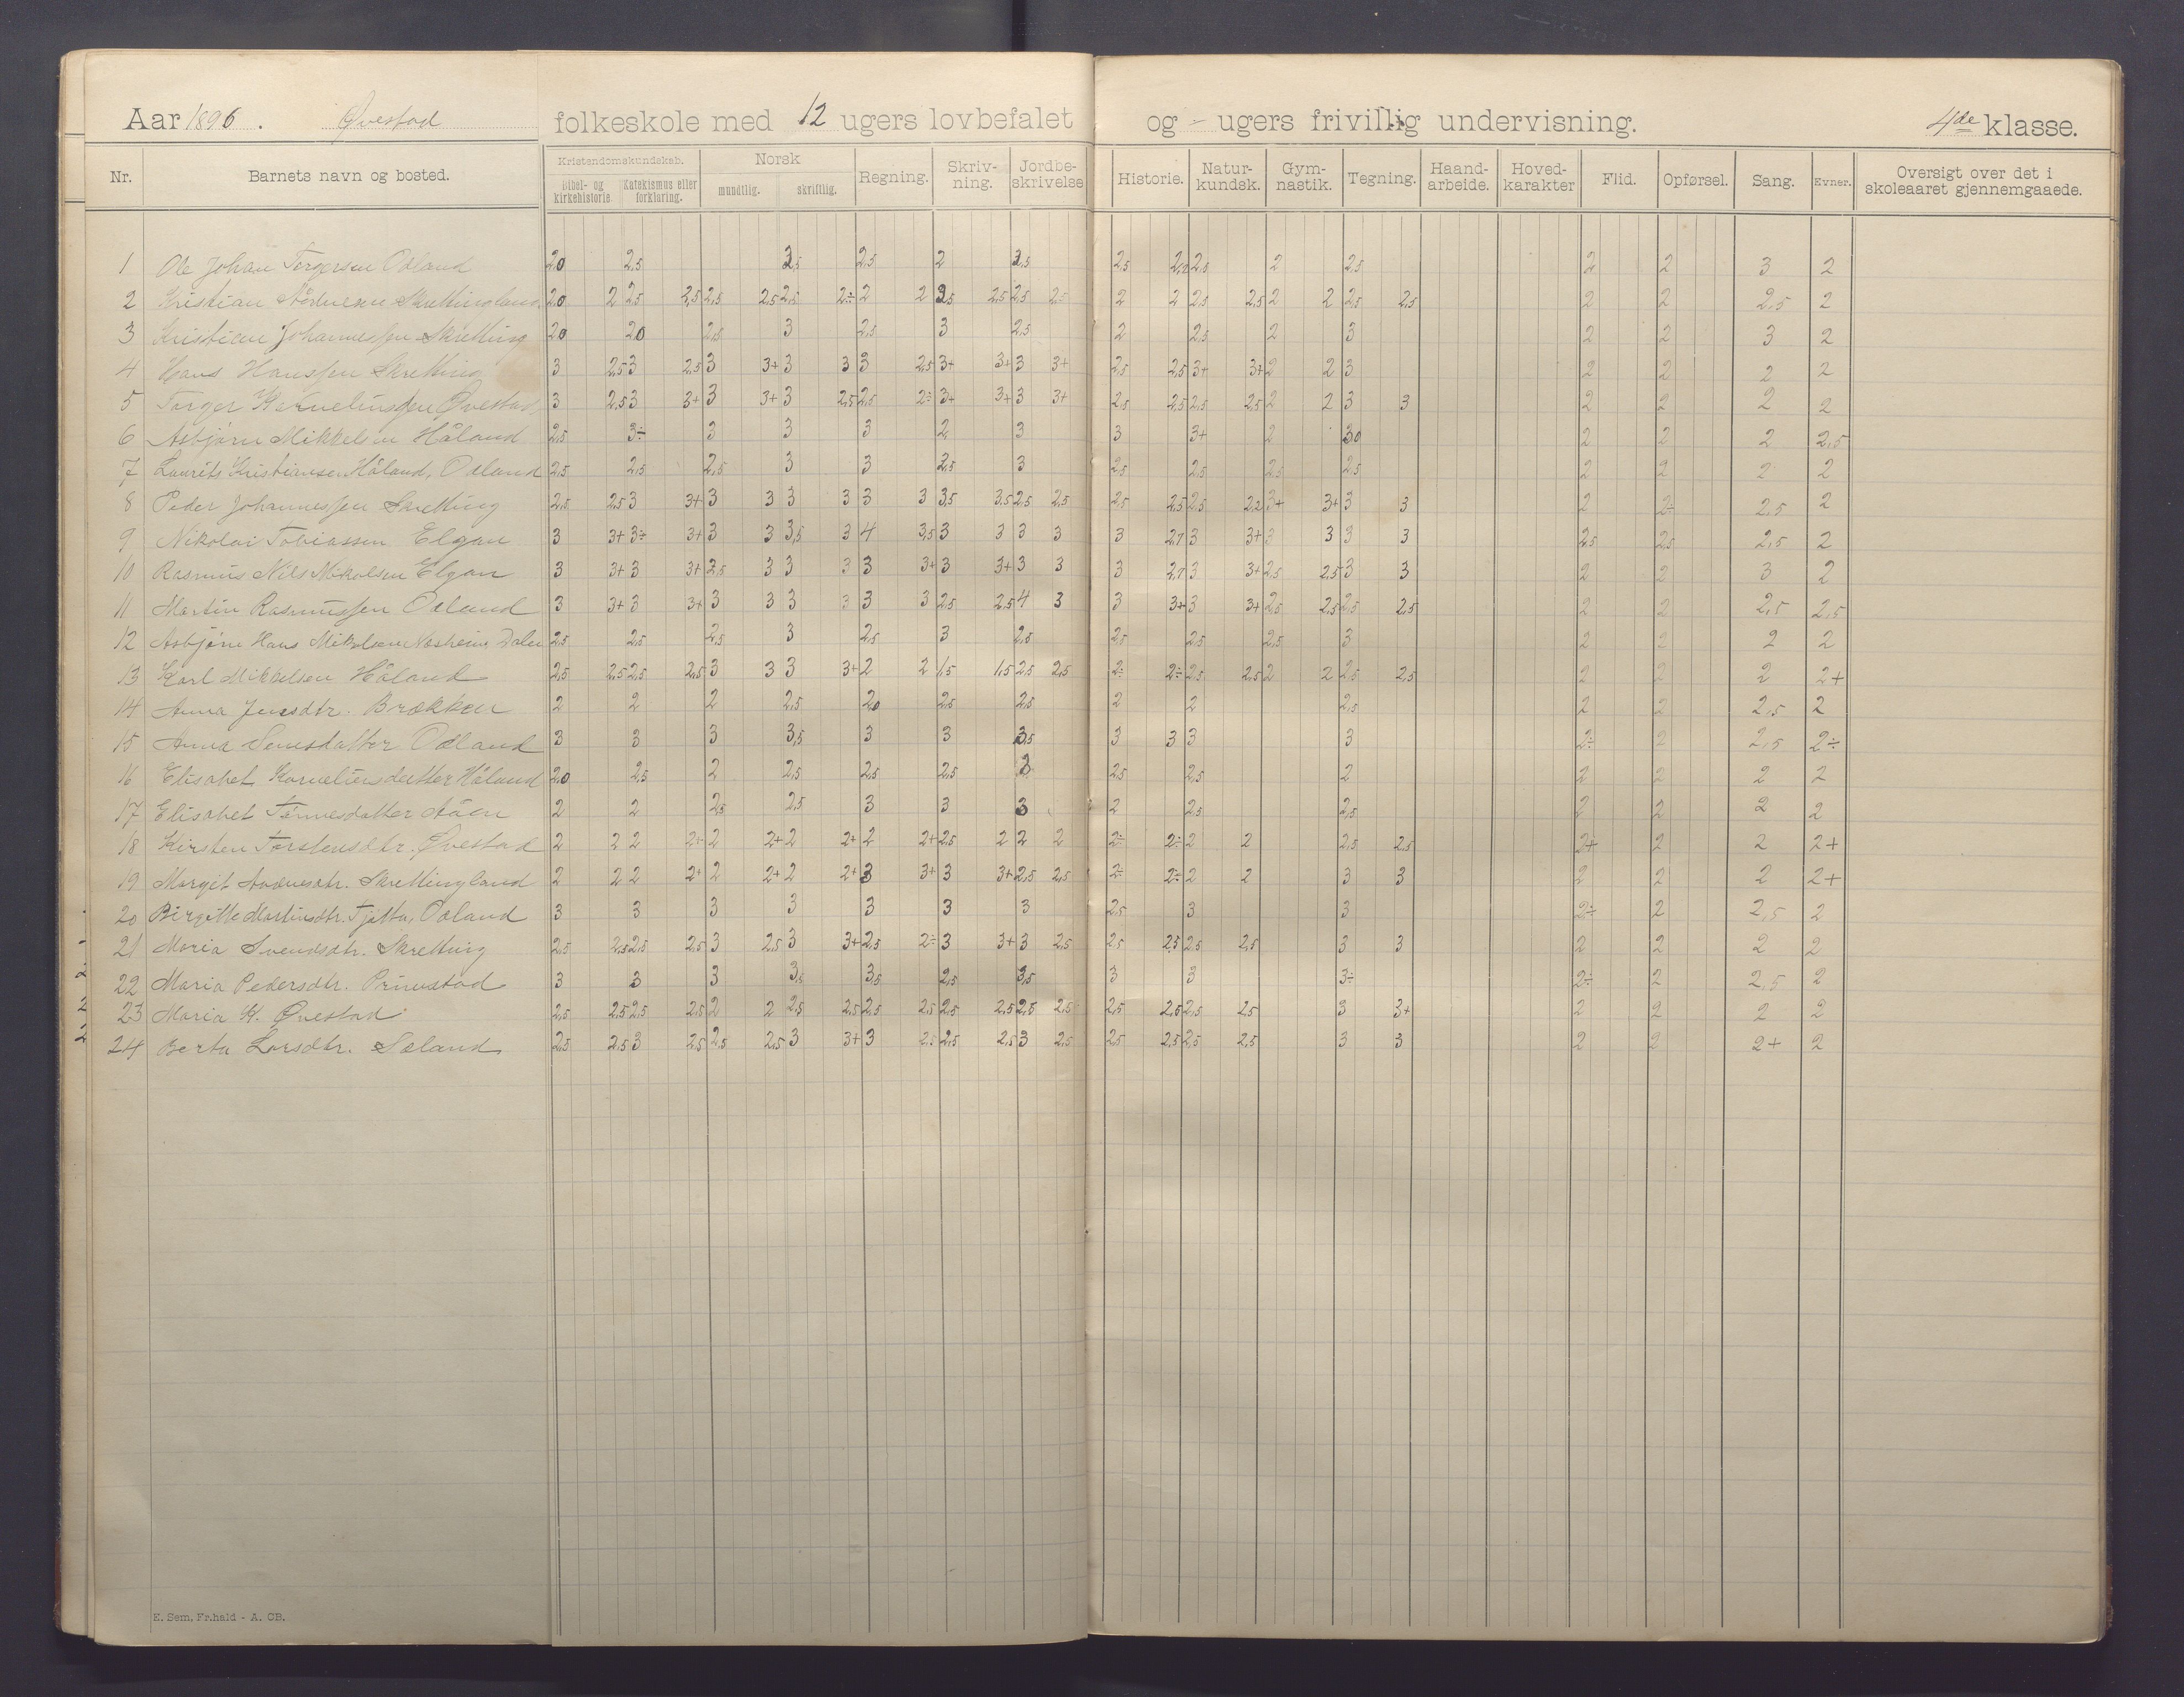 Aar 1896. Øvestad folkeskole med 12 ugers lovbefalet og - ugers frivillig undervisning. 4de klasse.
Nr. Barnets navn og bosted. Kristendomskundskab. Bibel- og kirkehistorie. Katekismus eller forklaring. Norsk mundtlig. skriftlig. Regning. Skriv-ning. Jordbe-skrivelse Historie. Natur-kundsk. Gym-nastik. Tegning. Haand-arbeide. Hoved-karakter Flid. Opførsel. Sang. Evner. Oversigt over det i skoleaaret gjennemgaaede.
1 Ole Johan Torgersen Ødland 2,0 2,5 2,5 2 2,5 2 2,5 2 2 3 2
2 Kristian Skrettingland 2,0 2 2,5 2,5 2,5 2,5 2,5 2÷ 2 2 2,5 2,5 2 2 2,5 2,5 2 2 2,5 2,5 2 2 2,5 2
3 Kristian Johannessen Skretting 2,0 2,0 2,5 3 2,5 3 2,5 2 2,5 2 3 2 2 3 2
4 Hans Hanssen Skretting 3 2,5 3 2,5 3 3+ 3 3 3 2,5 3+ 3+ 3 3+ 2,5 2,5 3+ 3+ 2 2 3 2 2 2 2
5 Torger Korneliussen Øvestad 3 2,5 3 3+ 3 3+ 3 2,5 2,5 2÷ 3+ 3+ 3 3+ 2,5 2,5 2,5 2,5 2 2 3 3 2 2 2 2
6 Asbjørn Mikkelsen Håland 2,5 3÷ 3 3 3 2 3 3 3+ 2 3,0 2 2 2 2,5
7 Laurits Kristiansen Håland, Ødland 2,5 2,5 2,5 3 3 2,5 3 2,5 2,5 2,5 2,5 2 2 2 2
8 Peder Johannessen Skretting 2,5 2,5 3 3+ 3 3 3 3 3 3 3,5 3,5 2,5 2,5 2,5 2,5 2,5 2,2 3+ 3+ 3 3 2 2÷ 2,5 2
9 Nikolai Tobiassen Elgan 3 3+ 3÷ 3+ 3 3 3,5 3 4 3,5 3 3 3 3 3 2,7 3 3+ 3 3 3 3 2,5 2,5 2,5 2
10 Rasmus Nils Nikolsen Elgan 3 3+ 3 3+ 2,5 3 3 3 3 3+ 3 3+ 3 3 3 2,7 3 3+ 2,5 2,5 3 3 2 2 3 2
11 Martin Rasmussen Ødland 3 3+ 3 3+ 3 3 3 3 3 3 2,5 2,5 4 3 3 3+ 3 3+ 2,5 2,5 2,5 2,5 2 2 2,5 2,5
12 Asbjørn Hans Nesheim Dalen 2,5 2,5 2,5 3 2,5 3 2,5 2,5 2,5 2,5 3 2 2 2 2
13 Karl Mikkelsen Håland 2,5 2,5 2,5 2,5 3 3 3 3+ 2 2 1,5 1,5 2,5 2,5 2÷ 2÷ 2,5 2,5 2 2 2,5 2,5 2 2 2 2+
14 Anna Jensdtr. Brækken 2 2 2 2,5 2,0 2,5 2,5 2 2 2,5 2 2 2,5 2
15 Anna Semsdatter Ødland 3 3 3 3,5 3 3 3,5 3 3 3 3 2÷ 2 2,5 2÷
16 Elisabet Korneliusdatter Håland 2,0 2,5 2 2,5 2,5 2,5 3 2,5 2,5 2 2 2 2 2
17 Elisabet Tønnesdatter Aaen 2 2 2,5 2,5 3 3 3 2 2,5 2,5 2 2 2 2
18 Kirsten Torstensdtr. Øvestad 2 2 2 2÷ 2 2+ 2 2+ 2 2+ 2,5 2 2 2 2÷ 2÷ 2 2 2,5 2,5 2+ 2 2 2+
19 Margit Skrettingland 2 2 2 2+ 2 2+ 2 2+ 3 3+ 3 3+ 2,5 2,5 2÷ 2÷ 2 2 3 3 2 2 2 2+
20 Birgitte Martinsdtr. Tjøtta, Ødland 3 3 3 3 3 3 3 2,5 3 3 2÷ 2 2,5 2
21 Maria Svendsdtr. Skretting 2,5 2,5 2,5 2,5 3 2,5 3 3+ 2,5 2÷ 3 3+ 3 2,5 2,5 2,5 2,5 2,5 3 3 2 2 2 2
22 Maria Pedersdtr. Prinestad 3 3 3 3,5 3,5 2,5 3,5 3 3 3÷ 2÷ 2 2,5 2
23 Maria K. Øvestad 2,5 2,5 2,5 2,5 2 2 2,5 2,5 2,5 2,5 2,5 2,5 2,5 2,5 2,5 2,5 2,5 2,5 3 3+ 2 2 2 2
24 Berta Larsdtr. Søland 2,5 2,5 3 2,5 2,5 2,5 3 3+ 3 2,5 2,5 2,5 3 2,5 2,5 2,5 2,5 2,5 3 3 2 2 2+ 2
E. Sem, Fr.hald - A. CB.